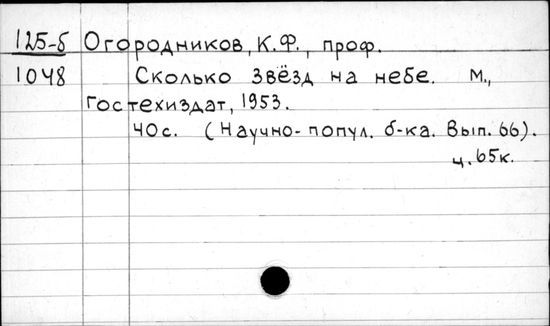 125-б Огородников, К.Ф., проф.
1048 Сколько звёзд на небе. М.,
Гостехиздат, 1953.
40с. (Научно-попул. б-ка. Вып. 66).
ц. 65к.